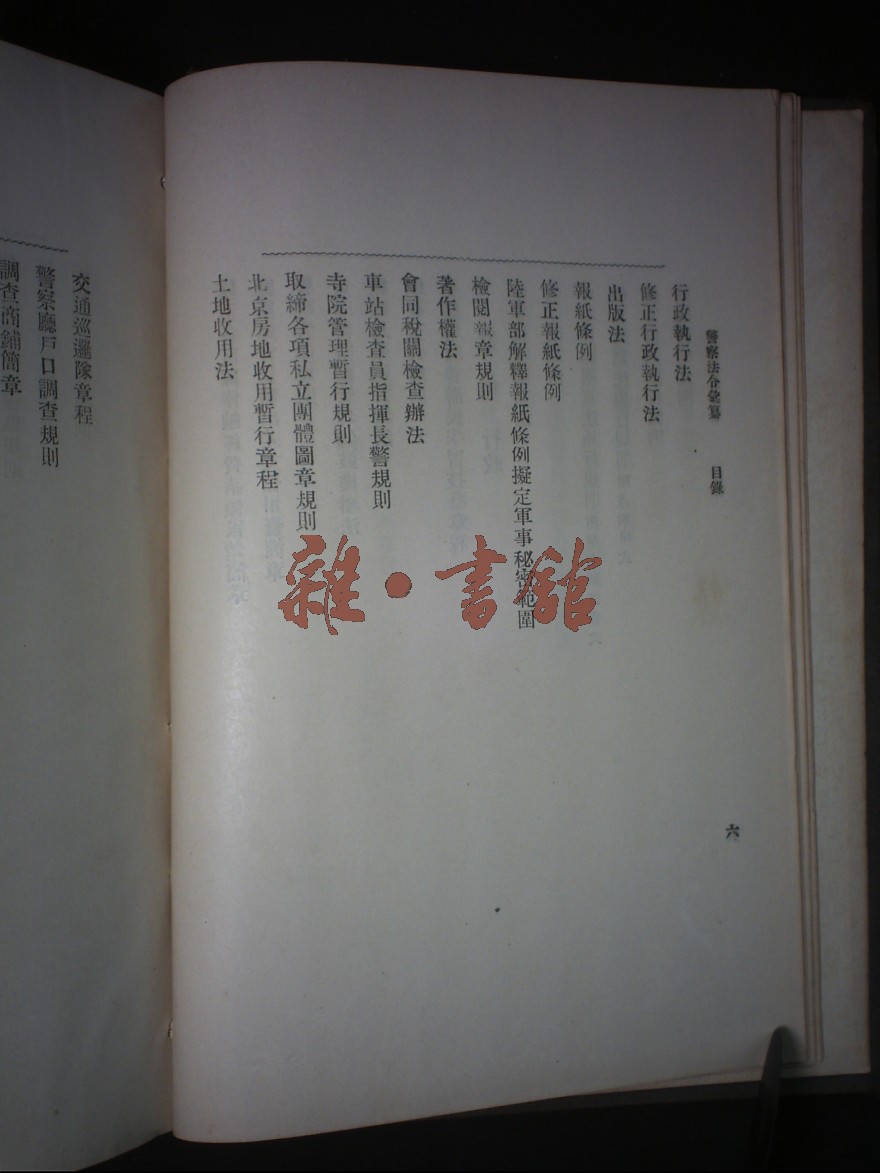 警察法令彙纂 目錄 六
行政執行法
修正行政執行法
出版法
報紙條例
修正報紙條例
陸軍部解釋報紙條例擬定軍事秘密範圍
檢閱報章規則
著作權法
會同稅關檢查辦法
車站檢查員指揮長警規則
寺院管理暫行規則
取締各項私立團體圖章規則
北京房地收用暫行章程
土地收用法
交通巡邏隊章程
警察廳戶口調查規則
調查商鋪簡章
雜·書館